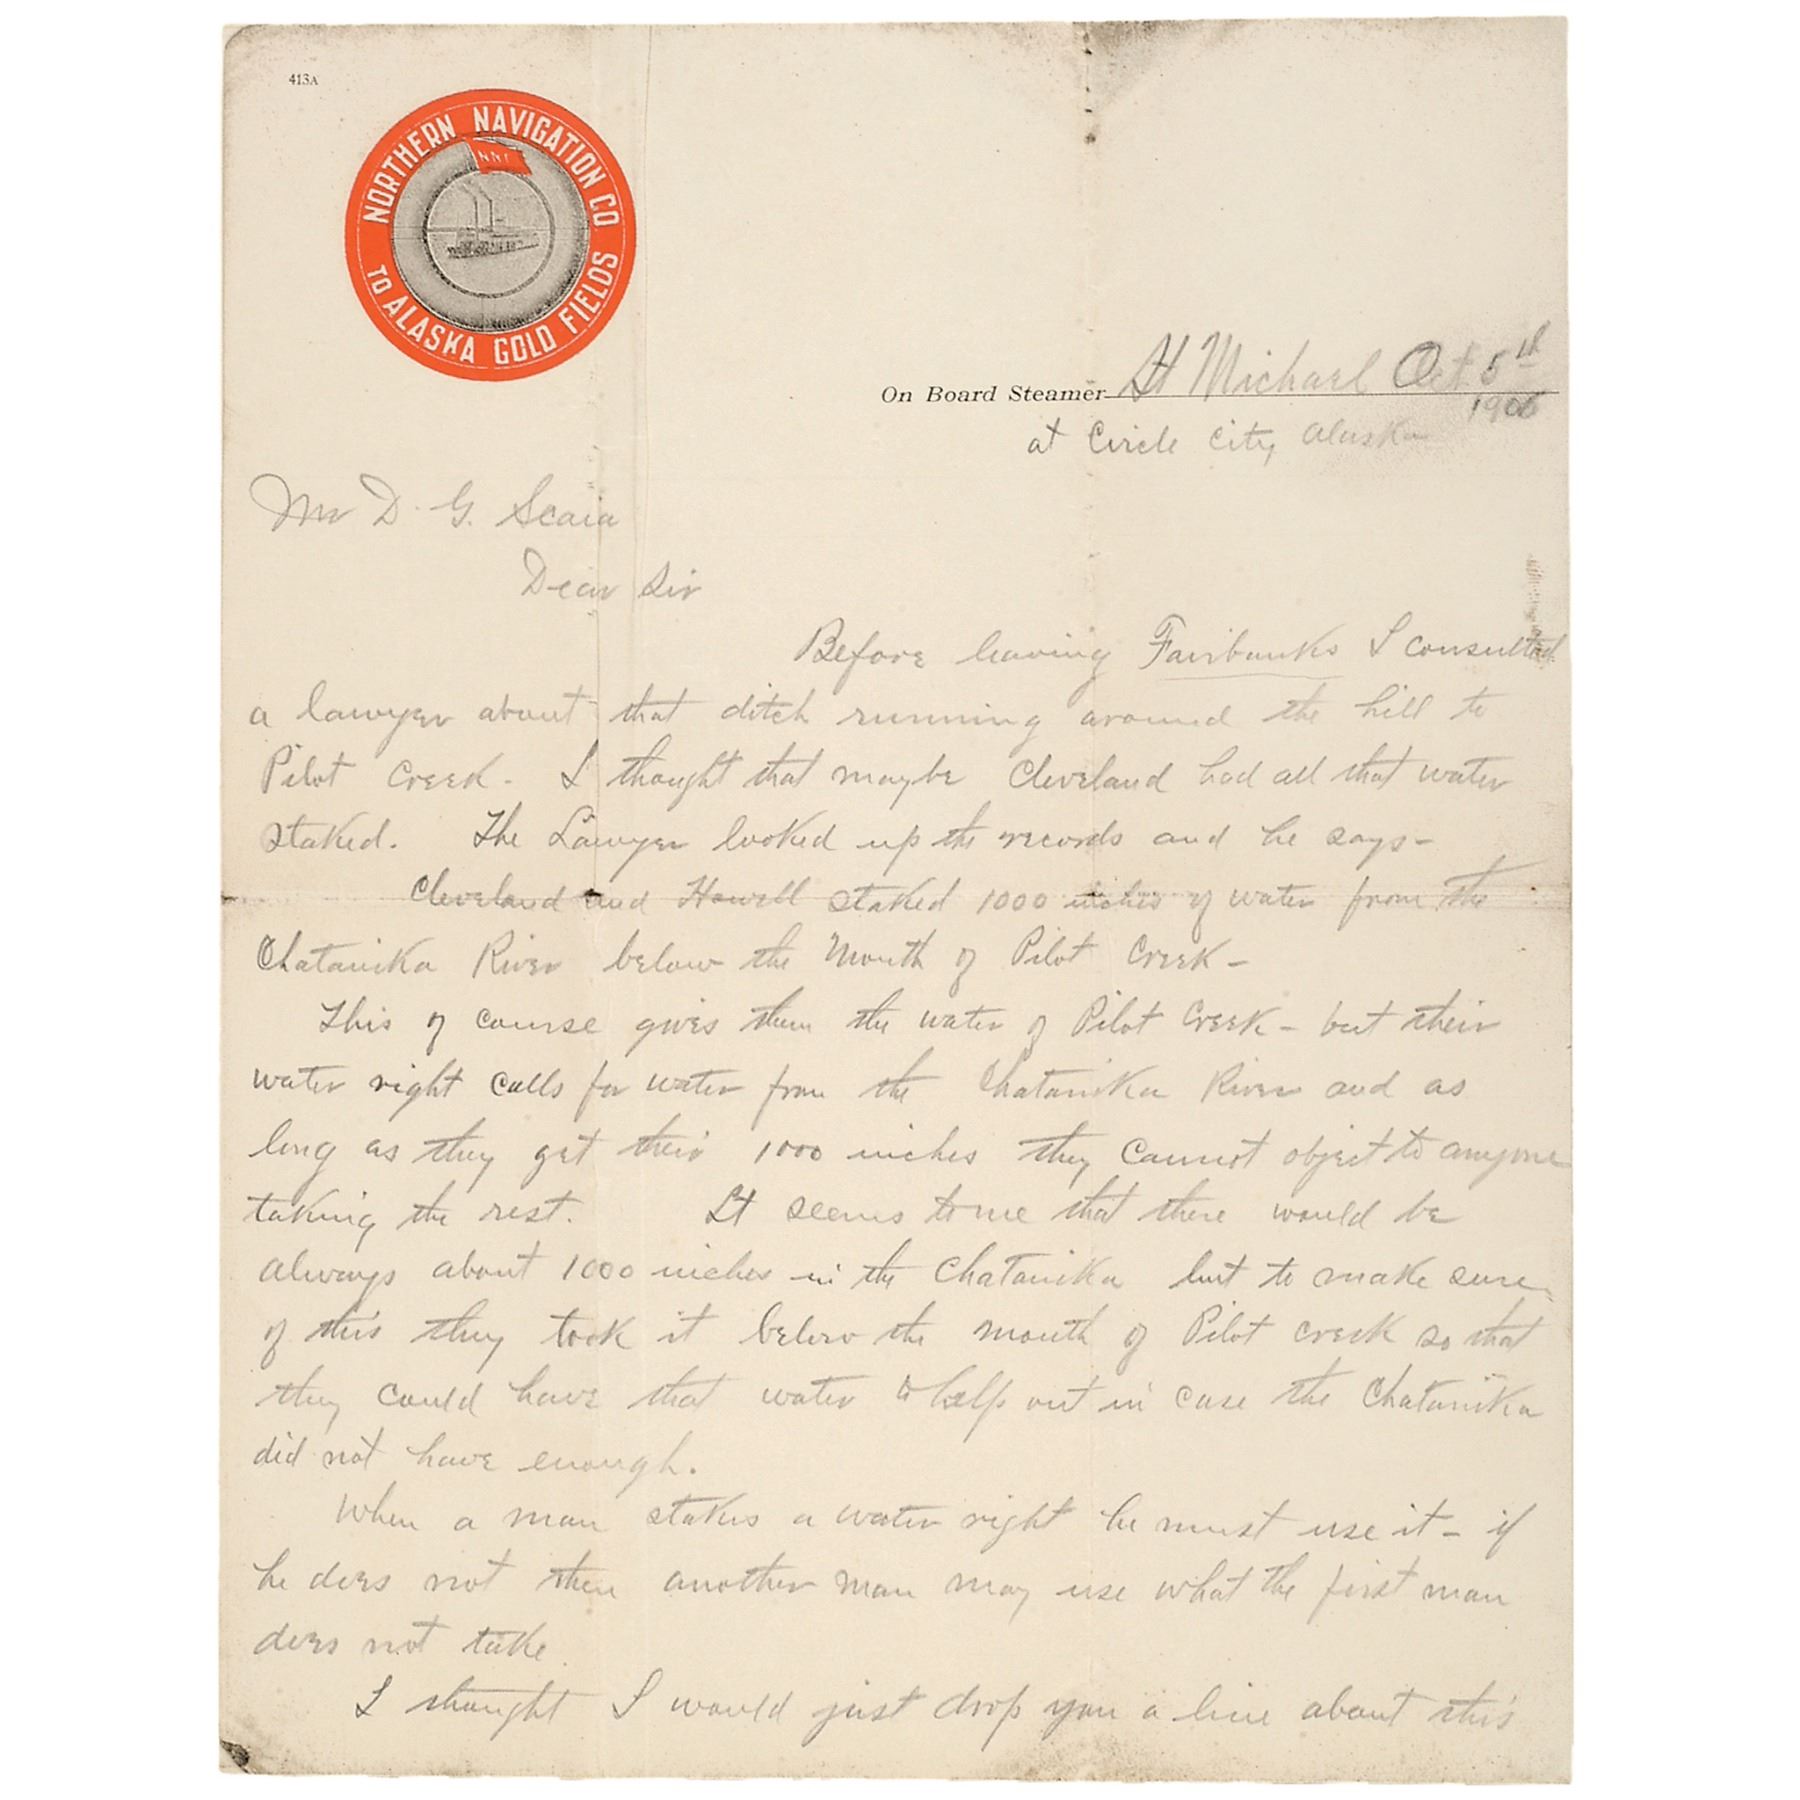 413A
NORTHERN NAVIGATION CO
NNC
TO ALASKA GOLD FIELDS
On Board Steamer St Michael Oct 5th
1906
at Circle City, Alaska
Mr D. G. Scaia
Dear Sir
Before leaving Fairbanks I consulted
a lawyer about that ditch running around the hill to
Pilot Creek - I thought that maybe Cleveland had all that water
staked. The Lawyer looked up the records and he says -
Cleveland and Howell staked 1000 inches of water from the
Chatanika River below the Mouth of Pilot Creek -
This of course gives them the water of Pilot Creek - but their
water right calls for water from the Chatanika River and as
long as they get their 1000 inches they cannot object to anyone
taking the rest. It seems to me that there would be
always about 1000 inches in the Chatanika but to make sure
of this they took it below the mouth of Pilot creek so that
they could have that water to help out in case the Chatanika
did not have enough.
When a man stakes a water right he must use it - if
he does not then another man may use what the first man
does not take
I thought I would just drop you a line about this